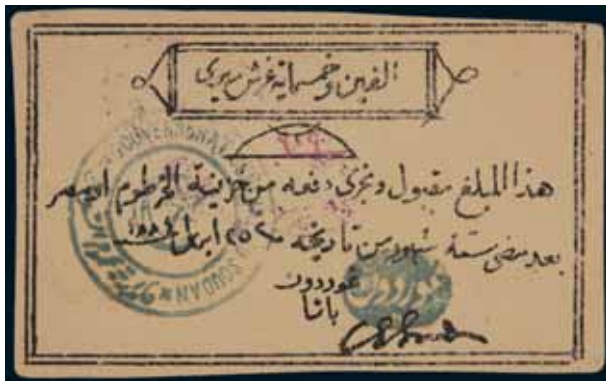 الفين وخمسماية غرش ميري
هذا المبلغ مقبول وتجرى دفعه من خزينة الخرطوم او مصر
بعد مضى ستة شهور من تاريخه ٢٥ ابريل
غوردون
باشا
SOUDAN